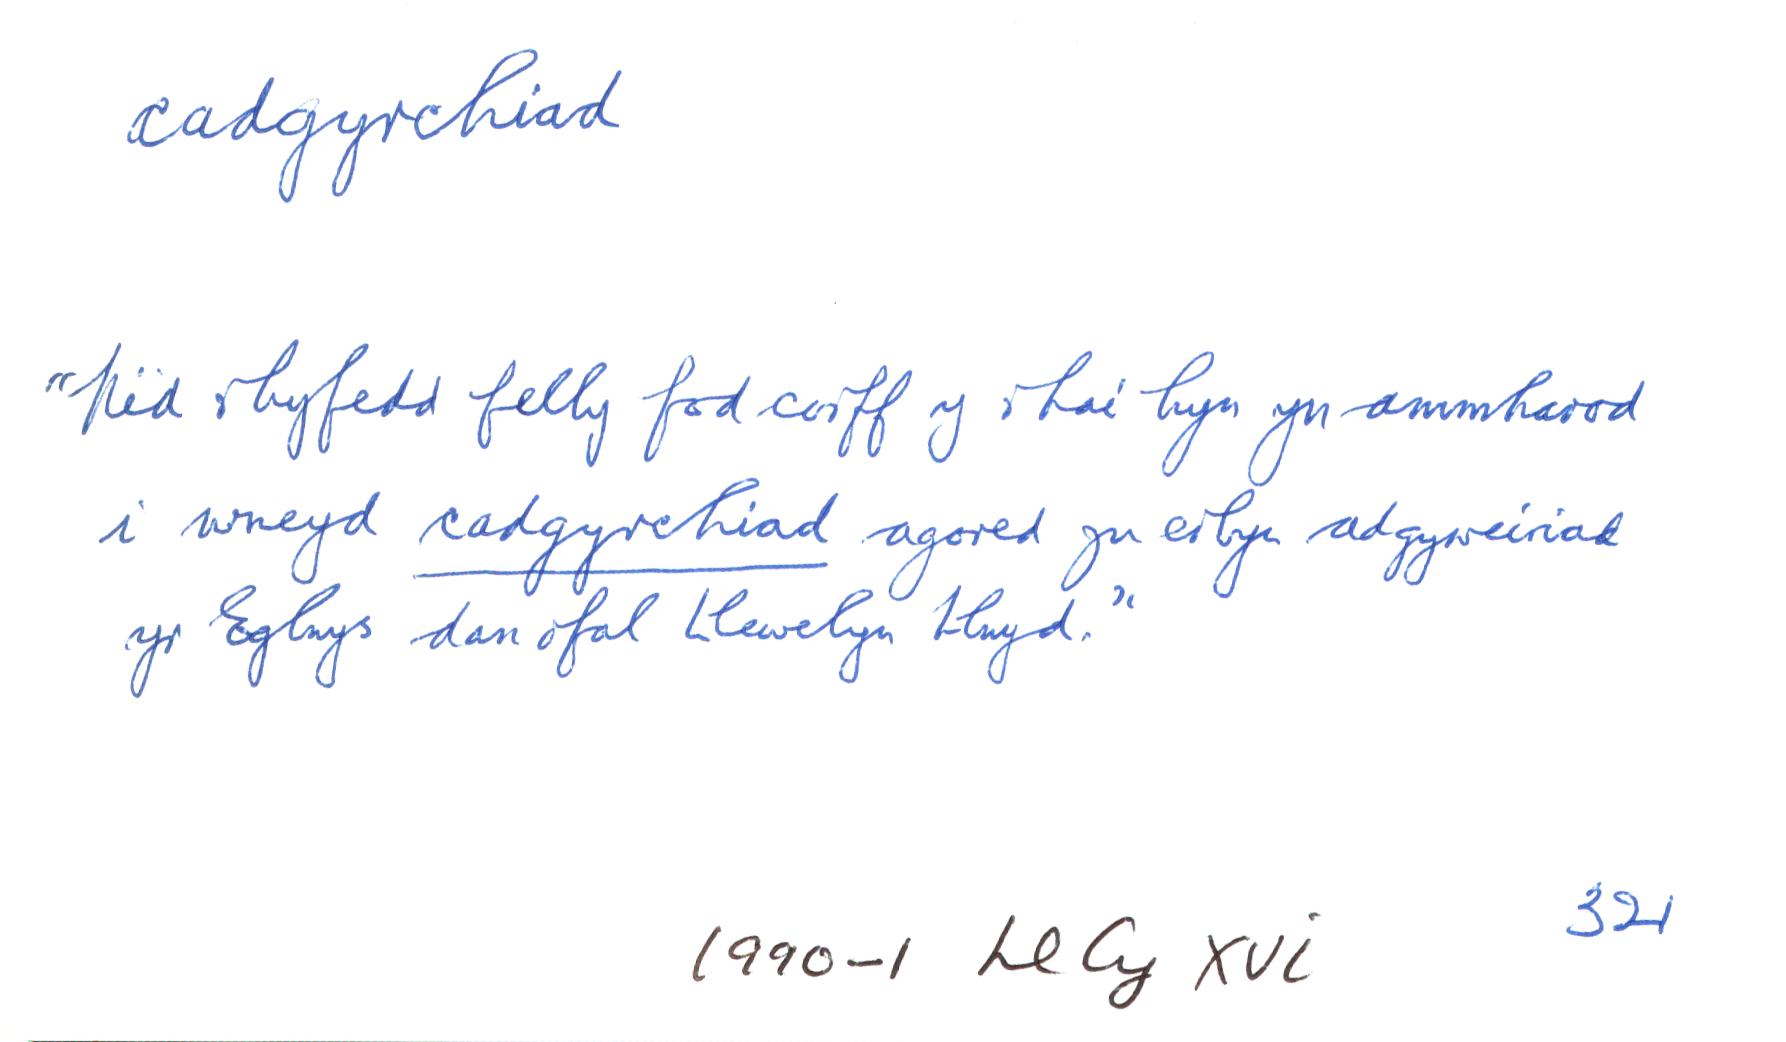 cadgyrchiad
"Nid rhyfedd felly fod corff y rhai hyn yn ammharod
i wneyd cadgyrchiad agored yn erbyn adgyweiriad
yr Eglwys dan ofal Llewelyn Llwyd."
321
1990-1 Ll Cy XVi